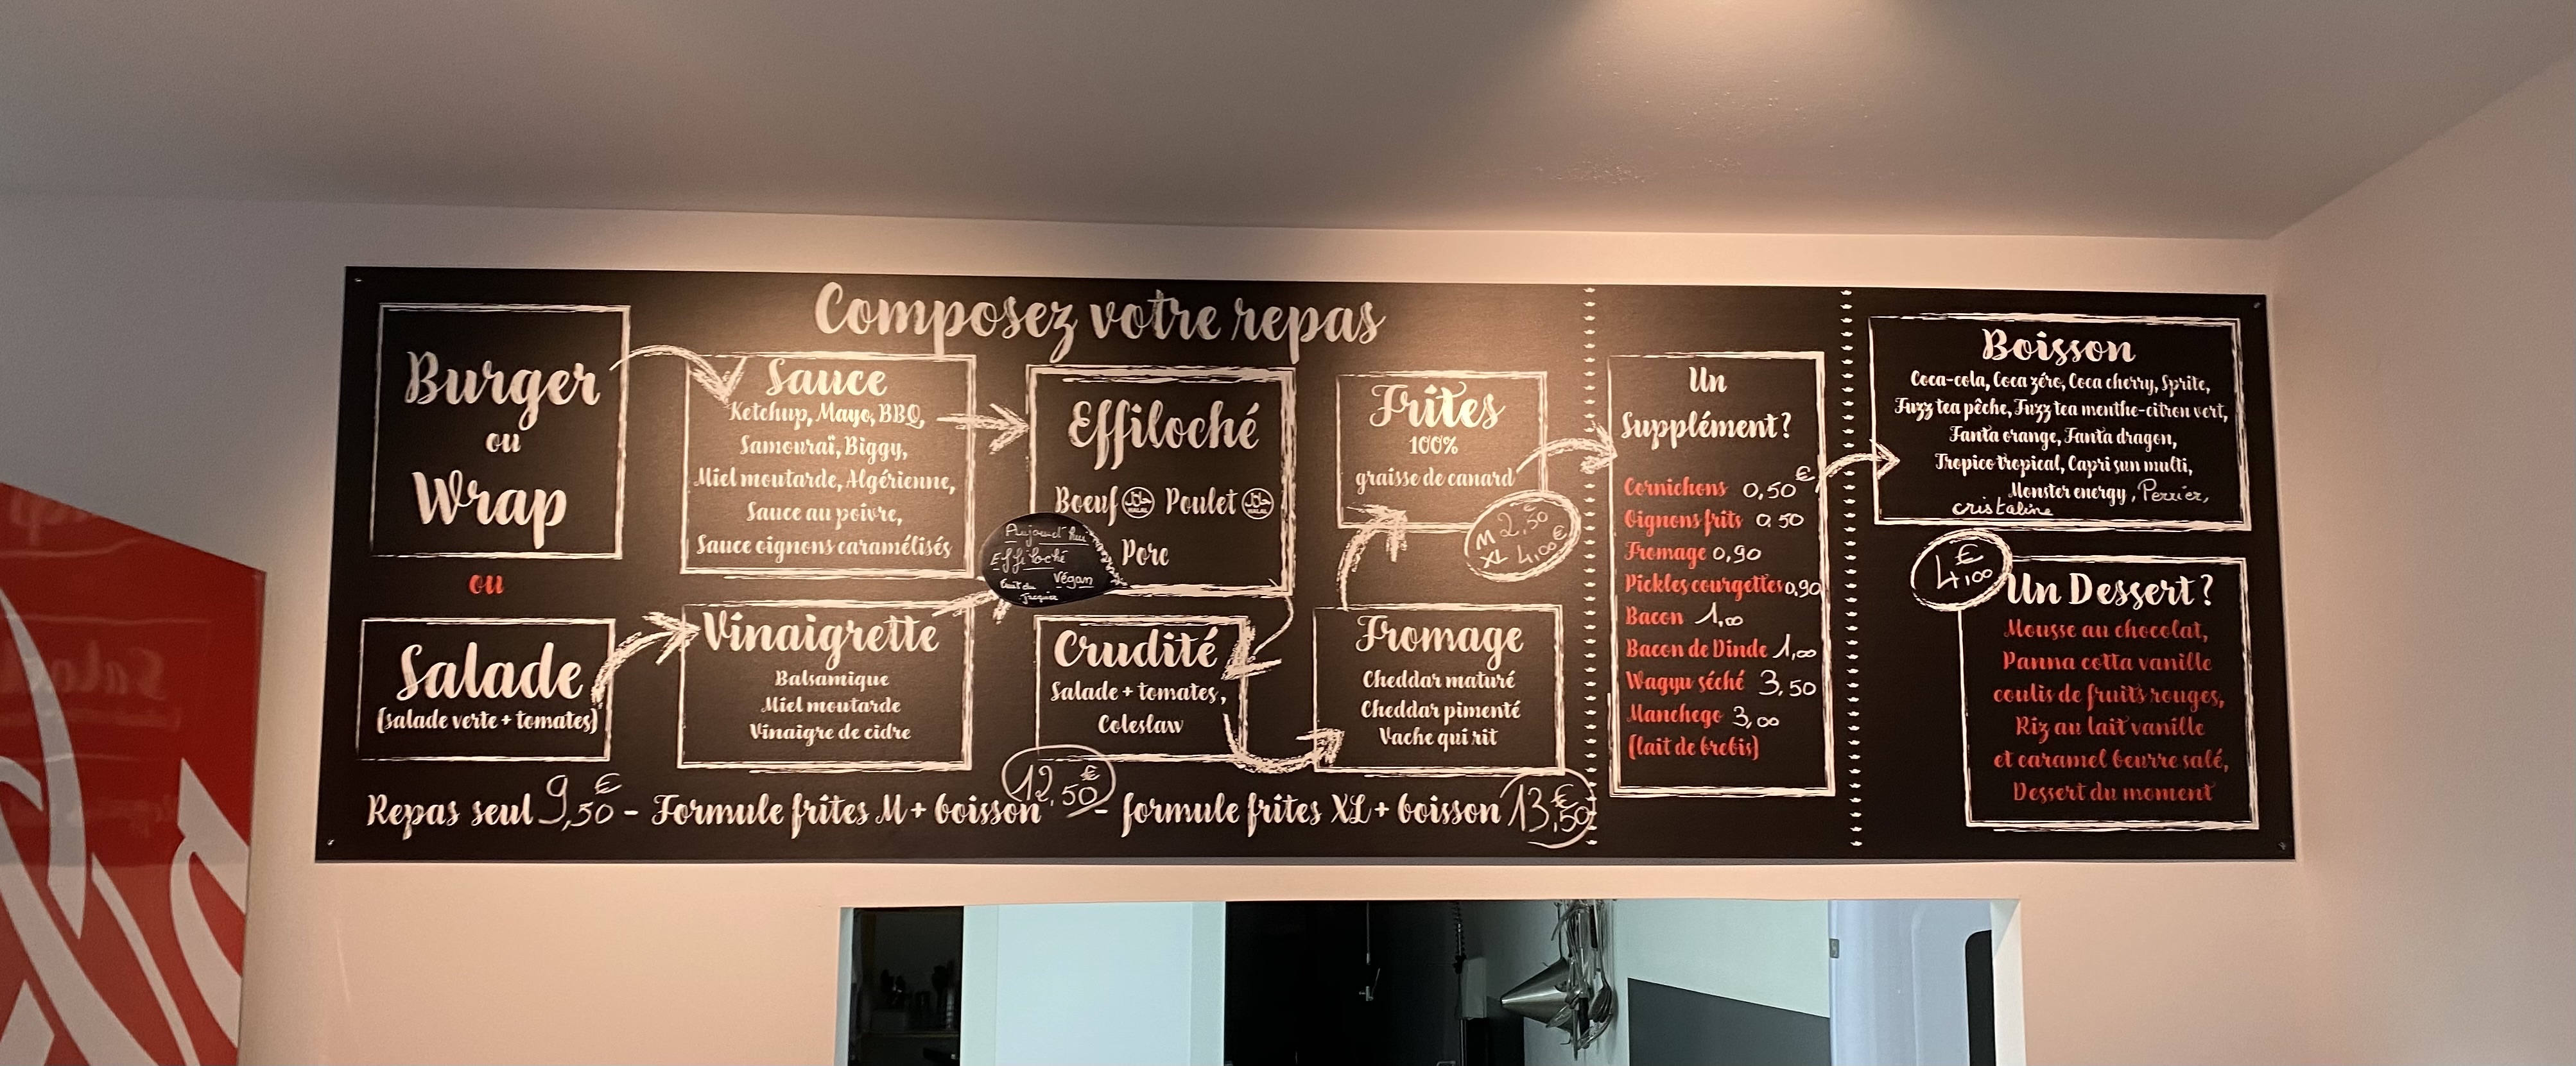 Composez votre repas
Burger
ou
Wrap
ou
Salade
(salade verte + tomates)
Sauce
Ketchup, Mayo, BBQ,
Samouraï, Biggy,
Miel moutarde, Algérienne,
Sauce au poivre,
Sauce oignons caramélisés
Vinaigrette
Balsamique
Miel moutarde
Vinaigre de cidre
Effiloché
Boeuf HALAL Poulet HALAL
Porc
Aujourd'hui
Effiloché
Végan
fruit du
Jacquier
Crudité
Salade + tomates,
Coleslaw
Fromage
Cheddar maturé
Cheddar pimenté
Vache qui rit
Frites
100%
graisse de canard
M 2,50
XL 4,00€
Repas seul 9,50€ - Formule frites M + boisson 12,50€ - formule frites XL + boisson 13,50€
Un
Supplément ?
Cornichons 0,50€
Oignons frits 0,50
Fromage 0,90
Pickles courgettes 0,90
Bacon 1,00
Bacon de Dinde 1,00
Wagyu séché 3,50
Manchego 3,00
(lait de brebis)
Boisson
Coca-cola, Coca zéro, Coca cherry, Sprite,
Fuzz tea pêche, Fuzz tea menthe-citron vert,
Fanta orange, Fanta dragon,
Tropico tropical, Capri sun multi,
Monster energy, Perrier,
cristaline
4,00€
Un Dessert ?
Mousse au chocolat,
Panna cotta vanille
coulis de fruits rouges,
Riz au lait vanille
et caramel beurre salé,
Dessert du moment